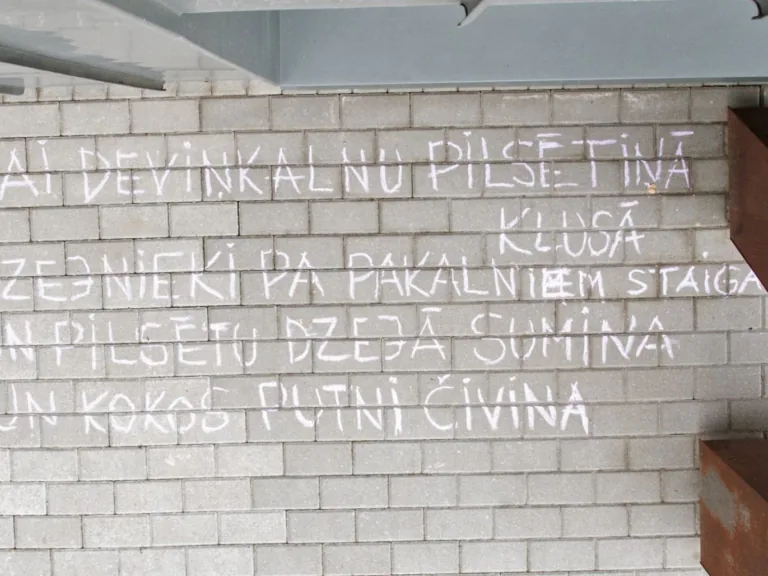 AI DEVIŅKALNU PILSĒTIŅĀ
KLUSĀ
ZEJNIEKI PA PAKALNIEM STAIGA
UN PILSĒTU DZEJĀ SUMINA
UN KOKOS PUTNI ČIVINA